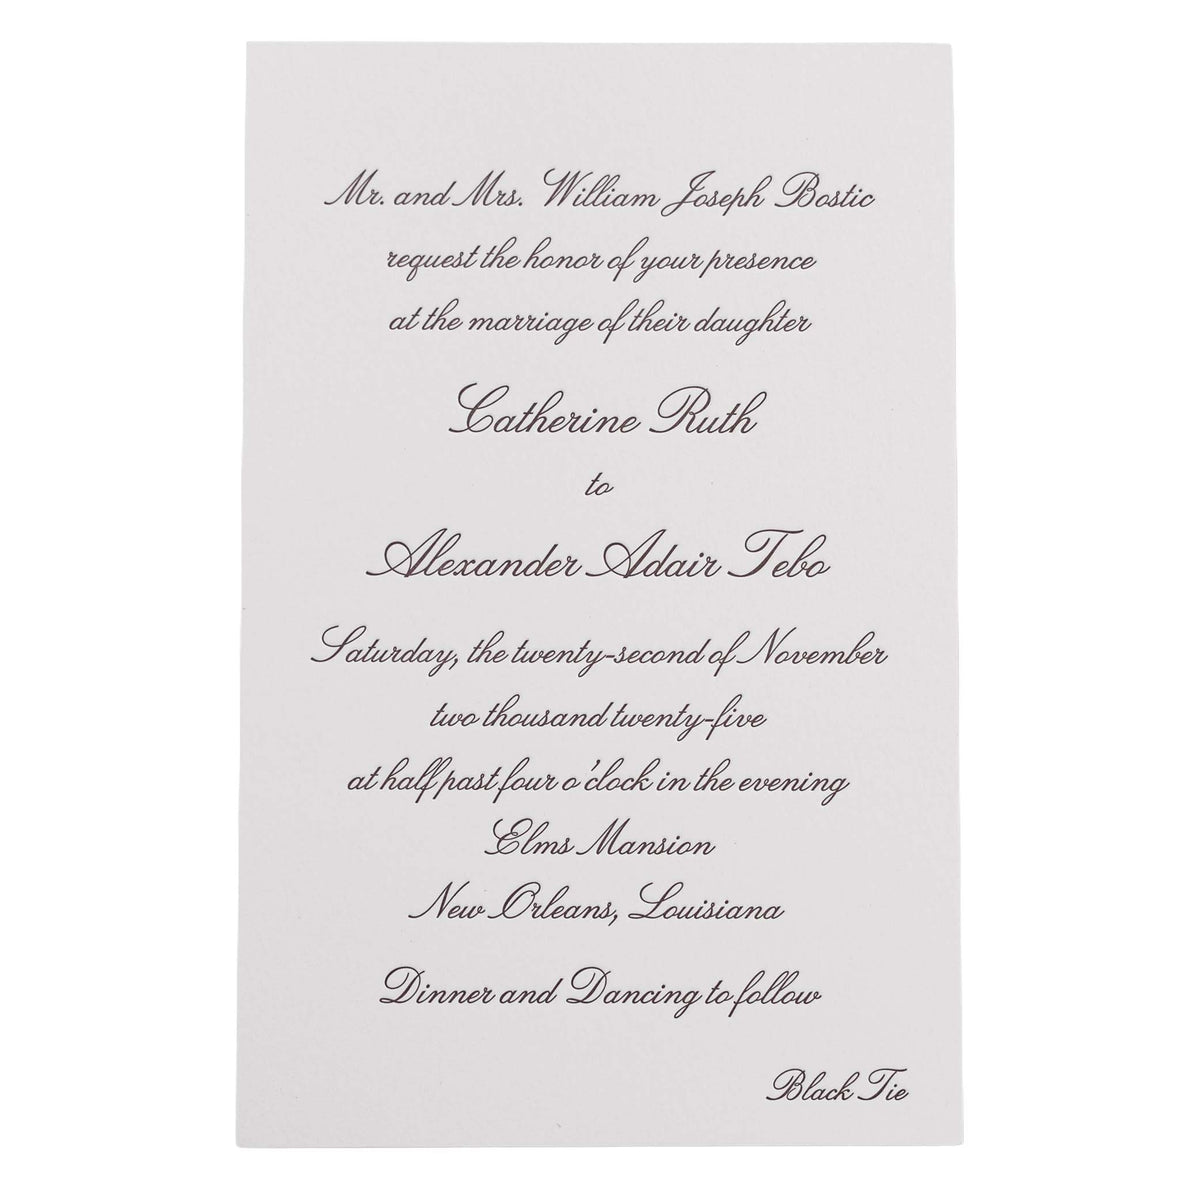 Mr. and Mrs. William Joseph Bostic
request the honor of your presence
at the marriage of their daughter
Catherine Ruth
to
Alexander Adair Tebo
Saturday, the twenty-second of November
two thousand twenty-five
at half past four o'clock in the evening
Elms Mansion
New Orleans, Louisiana
Dinner and Dancing to follow
Black Tie